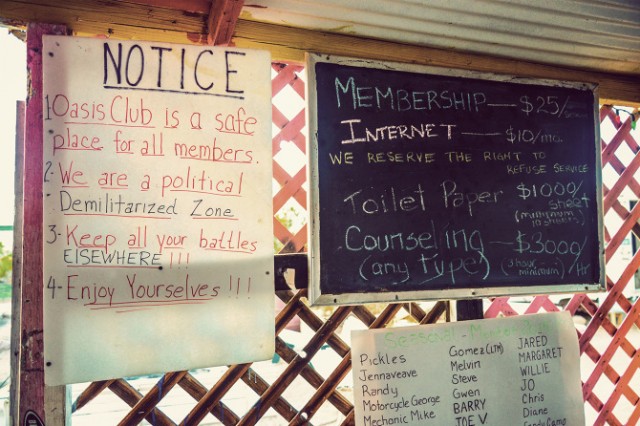 NOTICE
1- Oasis Club is a safe
place for all members.
2- We are a political
Demilitarized Zone
3- Keep all your battles
ELSEWHERE !!!
4- Enjoy Yourselves !!!
MEMBERSHIP — $25/
INTERNET — $10/mo.
WE RESERVE THE RIGHT TO
REFUSE SERVICE
Toilet Paper $1000/
sheet
(minimum
10 sheets)
Counseling — $3000/
(any type) (3 hour minimum) Hr
Pickles
Jennaveave
Randy
Motorcycle George
Mechanic Mike
Gomez (LTM)
Melvin
Steve
Gwen
BARRY
JOE V
JARED
MARGARET
WILLIE
JO
Chris
Diane